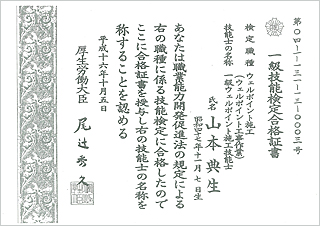 第〇四-一-一三一-一二-〇〇〇三号
一級技能検定合格証書
検定職種 ウェルポイント施工
（ウェルポイント工事作業）
技能士の名称 一級ウェルポイント施工技能士
氏名 山本典生
十一月七日生
あなたは職業能力開発促進法の規定による
右の職種に係る技能検定に合格したので
ここに合格証書を授与し右の技能士の名称を
称することを認める
平成十六年十月五日
厚生労働大臣 尾辻秀久